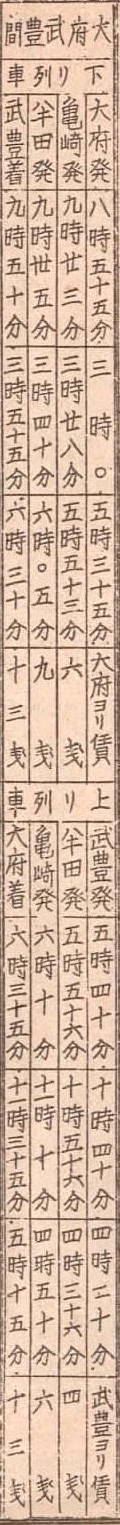 大府武豊間
下リ列車
大府発 八時五十五分 三時〇 五時三十五分 大府ヨリ賃
亀崎発 九時廿三分 三時廿八分 五時五十三分 六戋
半田発 九時丗五分 三時四十分 六時〇五分 九戋
武豊着 九時五十分 三時五十五分 六時三十分 十三戋
上リ列車
武豊発 五時四十分 十時四十分 四時二十分 武豊ヨリ賃
半田発 五時五十六分 十時五十六分 四時三十六分 四戋
亀崎発 六時十分 十一時十分 四時五十分 六戋
大府着 六時三十五分 十一時三十五分 五時十五分 十三戋